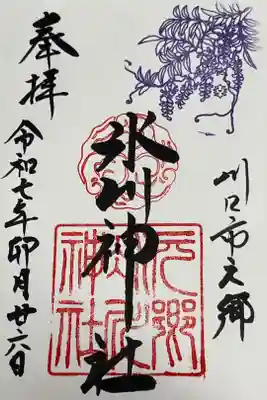 川口市元郷
氷川神社
元郷
氷川
神社
奉拝
令和七年卯月廿六日